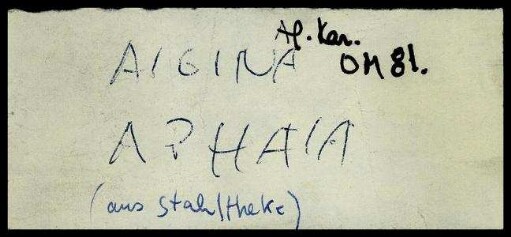 Af. Kar.
AIGINA OM 81.
APHAIA
(aus Stahltheke)